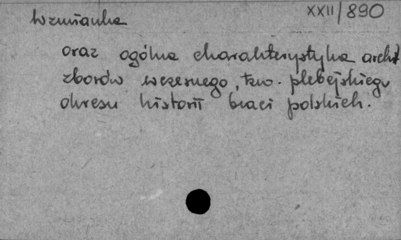 Wzmianka
XXII/890
oraz ogólna charakterystyka archit
zborów wczesnego, tzw. plebejskiego
okresu historii braci polskich.